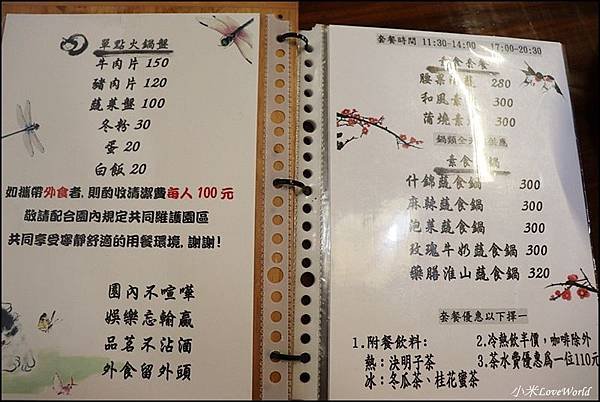 單點火鍋盤
牛肉片 150
豬肉片 120
蔬菜盤 100
冬粉 30
蛋 20
白飯 20
如攜帶外食者,則酌收清潔費每人 100 元
敬請配合園內規定共同維護園區
共同享受寧靜舒適的用餐環境,謝謝!
園內不喧嘩
娛樂忘輸贏
品茗不沾酒
外食留外頭
套餐時間 11:30-14:00 17:00-20:30
素食套餐
腰果 280
和風素 300
蒲燒素 300
鍋類全 供應
素食 鍋
什錦蔬食鍋 300
麻辣蔬食鍋 300
泡菜蔬食鍋 300
玫瑰牛奶蔬食鍋 300
藥膳淮山蔬食鍋 320
套餐優惠以下擇一
1.附餐飲料:
熱:決明子茶
冰:冬瓜茶、桂花蜜茶
2.冷熱飲半價,咖啡除外
3.茶水費優惠為一位110元
小米LoveWorld